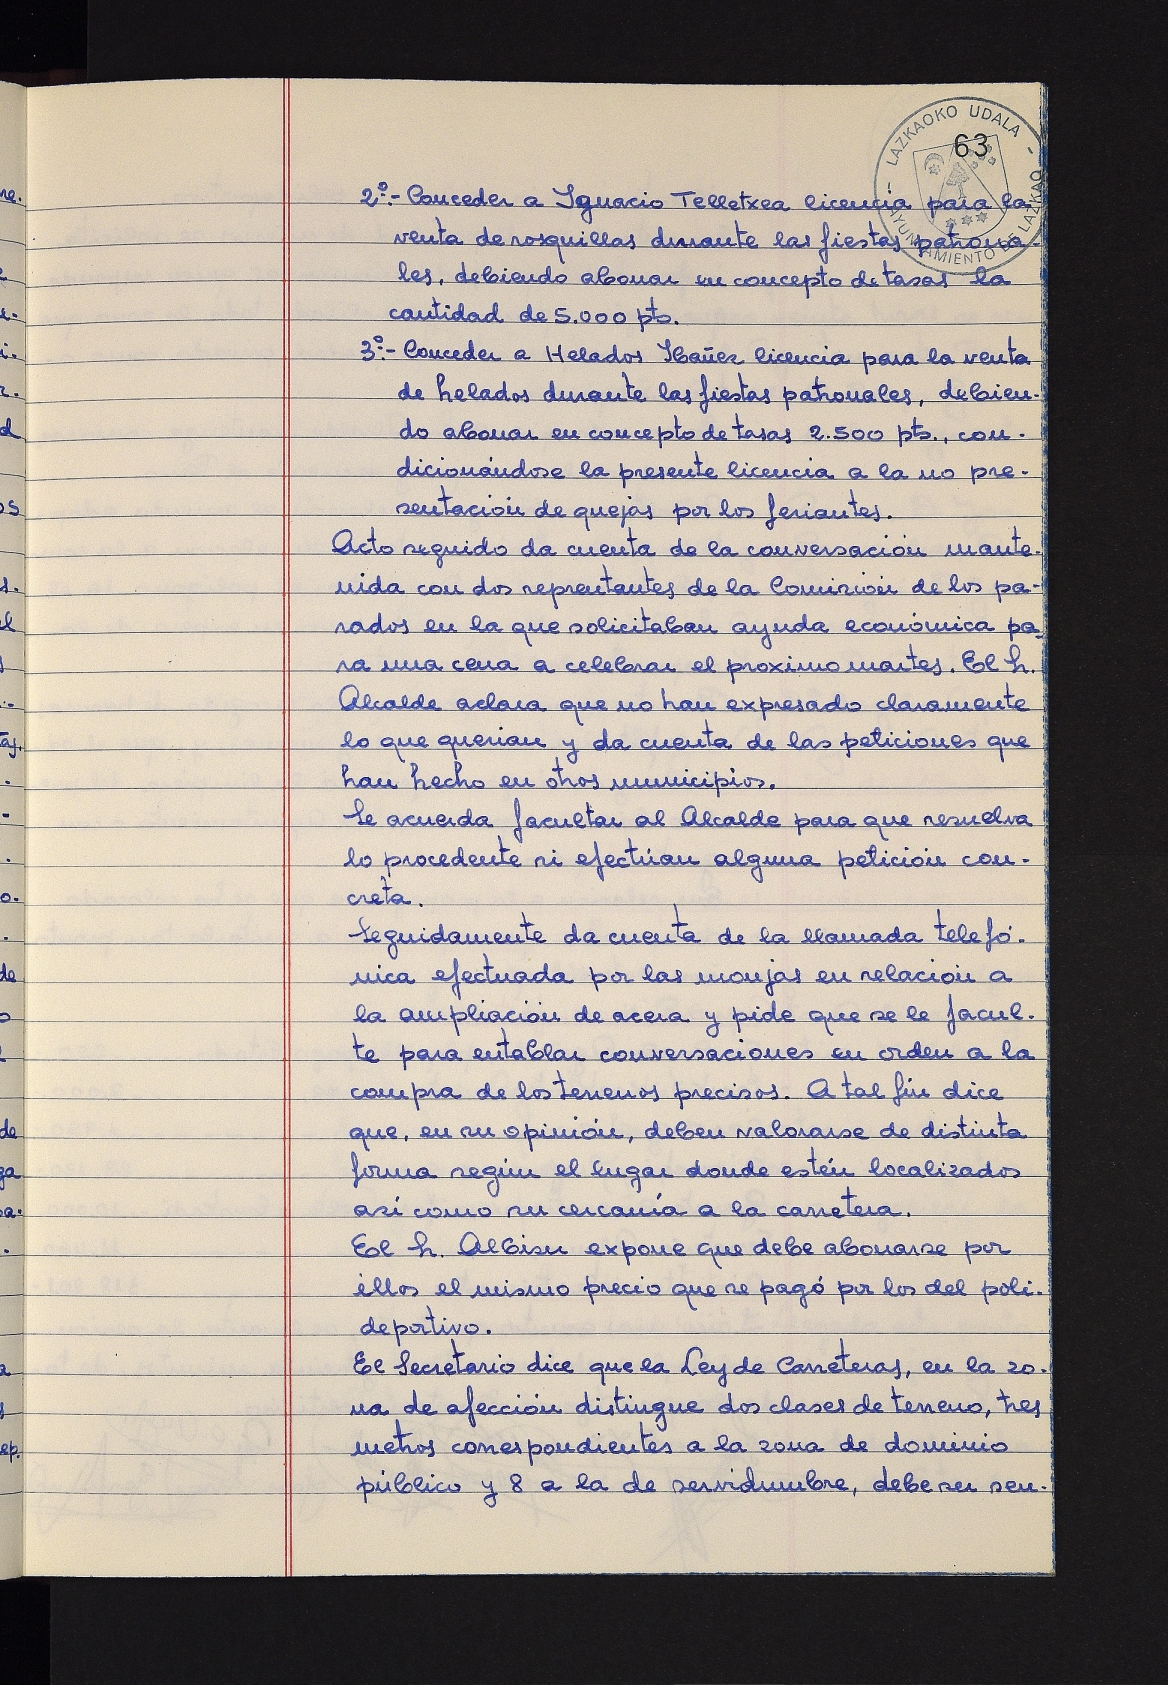 LAZKAOKO UDALA - AYUNTAMIENTO DE LAZKAO -
63
2º.- Conceder a Ignacio Telletxea licencia para la
venta de rosquillas durante las fiestas patrona-
les, debiendo abonar en concepto de tasas la
cantidad de 5.000 pts.
3º.- Conceder a Helados Ibañez licencia para la venta
de helados durante las fiestas patronales, debien-
do abonar en concepto de tasas 2.500 pts., con-
dicionándose la presente licencia a la no pre-
sentación de quejas por los feriantes.
Acto seguido da cuenta de la conversación mante-
nida con dos reprentantes de la Comisión de los pa-
rados en la que solicitaban ayuda económica pa-
ra una cena a celebrar el proximo martes. El Sr.
Alcalde aclara que no han expresado claramente
lo que querian y da cuenta de las peticiones que
han hecho en otros municipios.
Se acuerda facultar al Alcalde para que resuelva
lo procedente si efectúan alguna petición con-
creta.
Seguidamente da cuenta de la llamada telefó-
nica efectuada por las monjas en relación a
la ampliación de acera y pide que se le facul-
te para entablar conversaciones en orden a la
compra de los terrenos precisos. A tal fin dice
que, en su opinión, deben valorarse de distinta
forma según el lugar donde estén localizados
así como su cercanía a la carretera.
El Sr. Albisu expone que debe abonarse por
éllos el mismo precio que se pagó por los del poli-
deportivo.
El Secretario dice que la Ley de Carreteras, en la zo-
na de afección distingue dos clases de terreno, tres
metros correspondientes a la zona de dominio
público y 8 a la de servidumbre, debe ser sen-